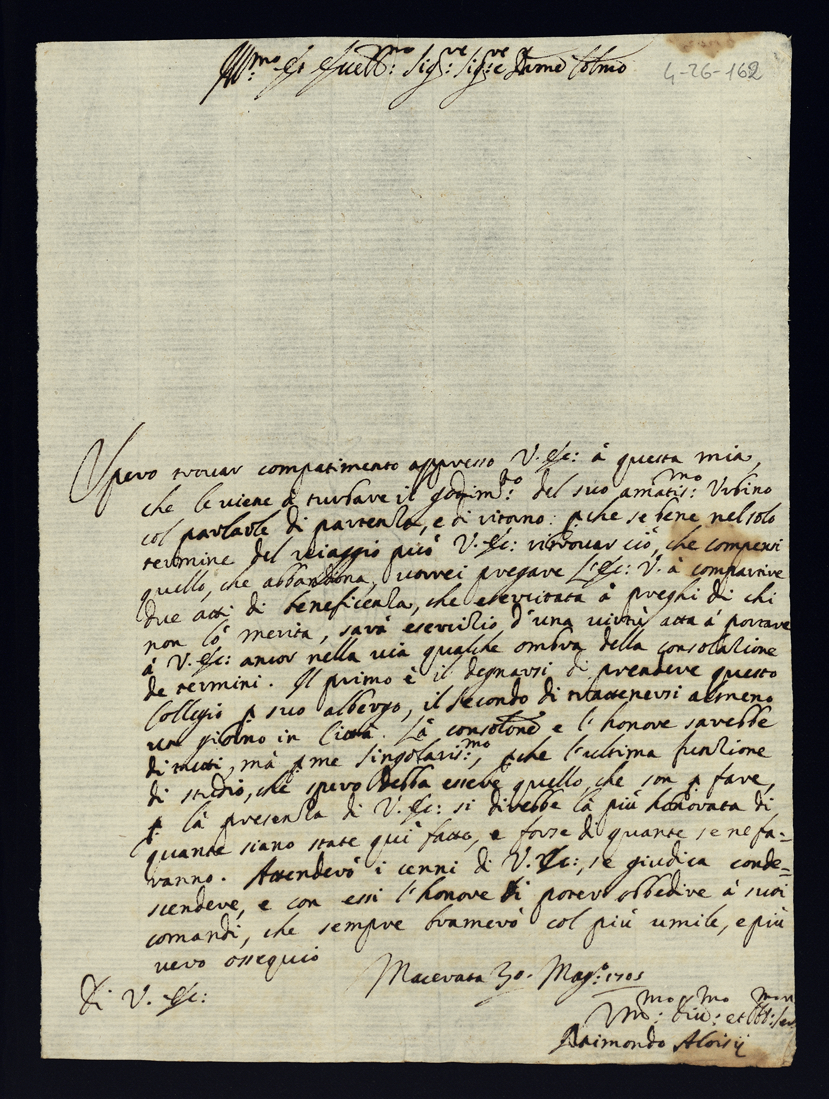 Ill:mo et Eccell:mo Sig:re Sig:re e Prone Colmo
4-26-162
Spero trovar compatimento appresso V. Ecc: à questa mia,
che le viene à turbare il godim:to del suo amatis:mo Urbino
col parlarle di partenza, e di ritorno: pche se bene nel solo
termine del viaggio può V. Ecc: ritrovar ciò, che compensi
quello, che abbandona, vorrei pregare l'Ecc: V. à compartire
due atti di beneficenza, che esercitata à preghi di chi
non lo merita, sarà esercizio d'una virtù atta à portare
à V. Ecc: ancor nella via qualche ombra della consolazione
de termini. Il primo è il degnarsi di prendere questo
Collegio p suo albergo, il secondo di trattenersi almeno
un giorno in Città. Là consolone e l'honore sarebbe
di tutti, mà p me singolaris:mo, pche l'ultima funzione
di studio, che spero debba essere quello, che son p fare,
p là presenza di V. Ecc: si direbbe là più honorata di
quante siano state quì fatte, e forse di quante se ne fa=
ranno. Attenderò i cenni di V. Ecc:, se giudica conde=
scendere, e con essi l'honore di poter obbedire à suoi
comandi, che sempre bramerò col più umile, e più
vero ossequio
Macerata 30. Mag:o 1705
Di V. Ecc:
Um:mo Div:mo et Obb:mo Ser
Raimondo Aloisij